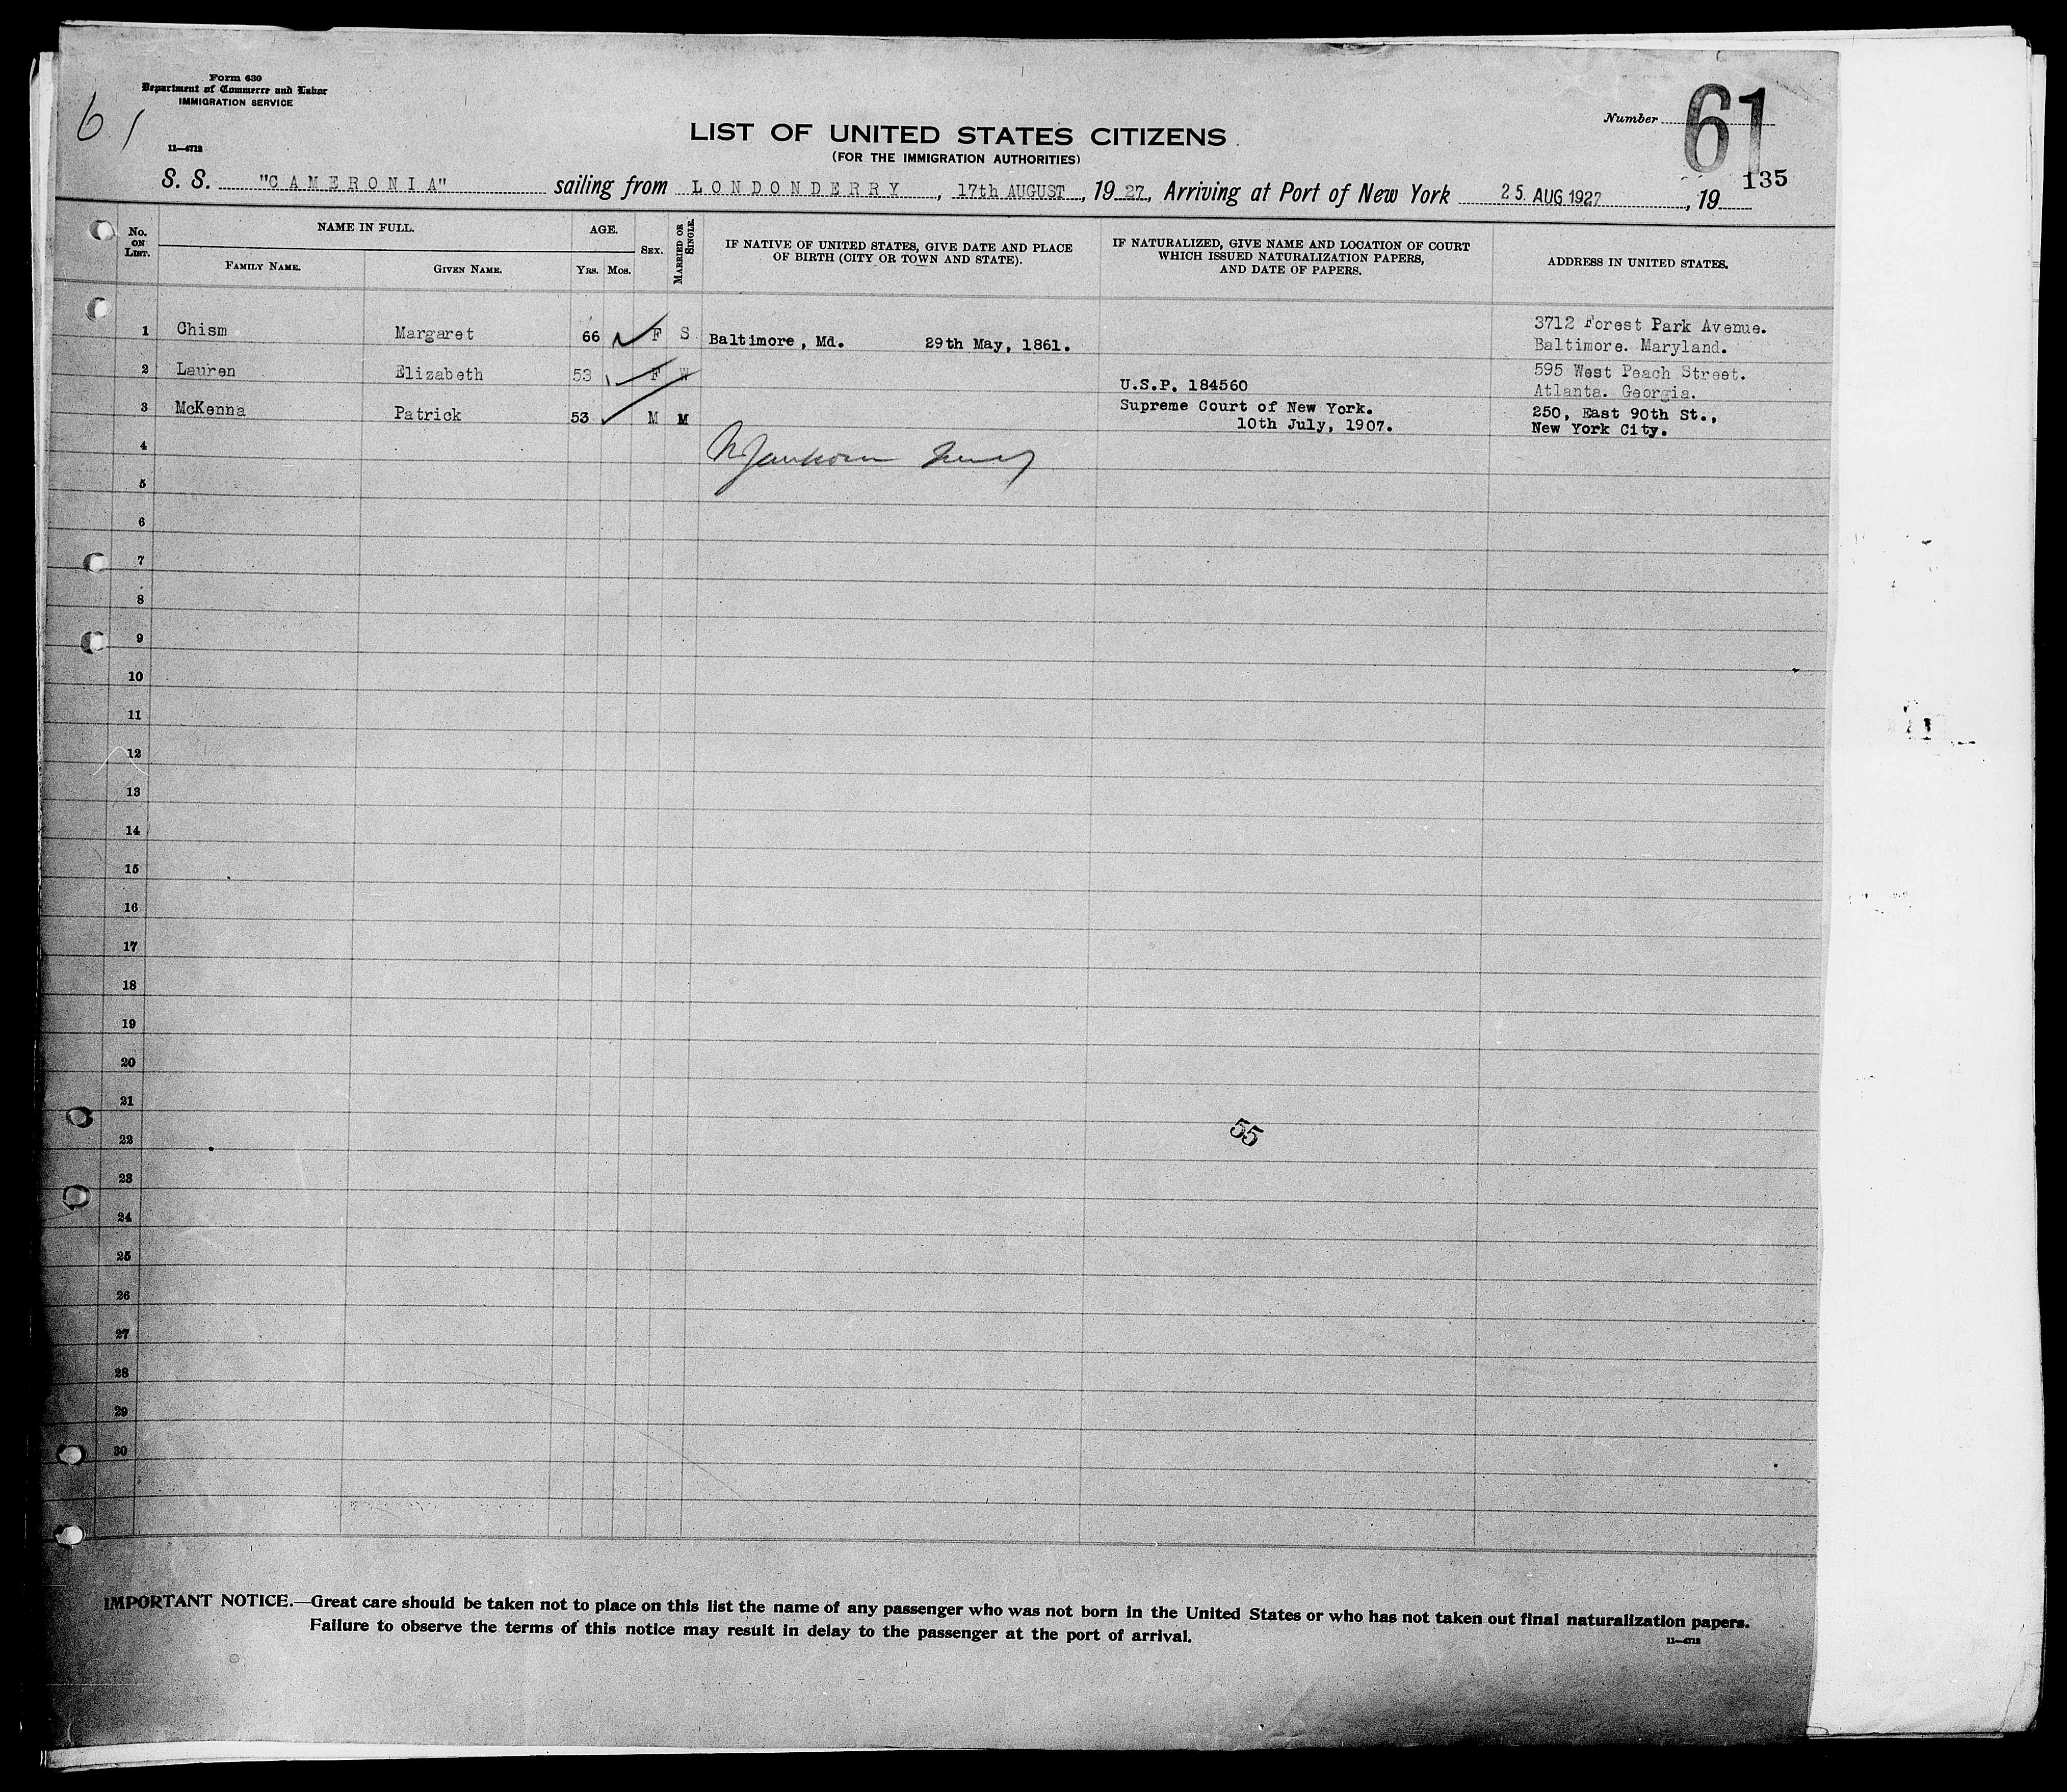 Form 630
Department of Commerce and Labor
IMMIGRATION SERVICE
61
11—4712
Number 61
135
LIST OF UNITED STATES CITIZENS
(FOR THE IMMIGRATION AUTHORITIES)
S. S. "CAMERONIA" sailing from LONDONDERRY, 17th AUGUST, 1927, Arriving at Port of New York 25. AUG 1927, 19
No. ON LIST. NAME IN FULL. AGE. SEX. MARRIED OR SINGLE. IF NATIVE OF UNITED STATES, GIVE DATE AND PLACE OF BIRTH (CITY OR TOWN AND STATE). IF NATURALIZED, GIVE NAME AND LOCATION OF COURT WHICH ISSUED NATURALIZATION PAPERS, AND DATE OF PAPERS. ADDRESS IN UNITED STATES.
FAMILY NAME. GIVEN NAME. YRS. MOS.
1 Chism Margaret 66 F S Baltimore, Md. 29th May, 1861. 3712 Forest Park Avenue.
Baltimore. Maryland.
2 Lauren Elizabeth 53 F W U.S.P. 184560 595 West Peach Street.
Atlanta. Georgia.
3 McKenna Patrick 53 M M Supreme Court of New York. 250, East 90th St.,
10th July, 1907. New York City.
4
5
6
7
8
9
10
11
12
13
14
15
16
17
18
19
20
21
55
22
23
24
25
26
27
28
29
30
IMPORTANT NOTICE.—Great care should be taken not to place on this list the name of any passenger who was not born in the United States or who has not taken out final naturalization papers.
Failure to observe the terms of this notice may result in delay to the passenger at the port of arrival.
11—4712